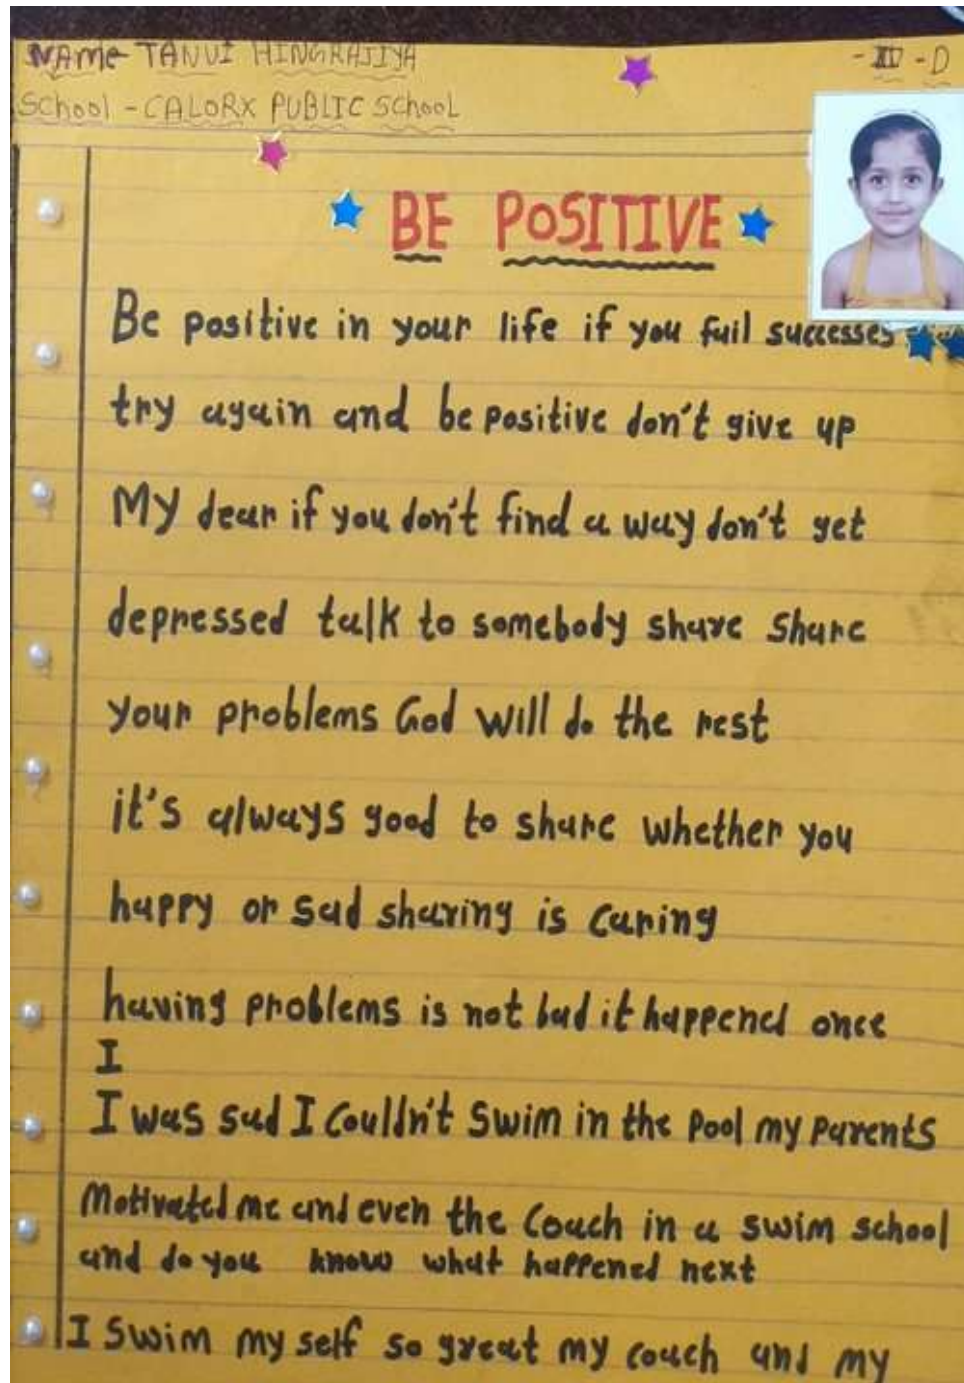 NAme- TANVI HINGRAJIYA
- IV - D
School - CALORX PUBLIC SchooL
BE POSITIVE
Be positive in your life if you fail successes
try again and be positive don't give up
My dear if you don't find a way don't get
depressed talk to somebody share Share
your problems God will do the rest
it's always good to share whether you
happy or sad sharing is caring
having problems is not bad it happened once
I
I was sad I Couldn't Swim in the Pool my parents
Motivated me and even the Coach in a swim school
and do you know what happened next
I Swim my self so great my coach and my